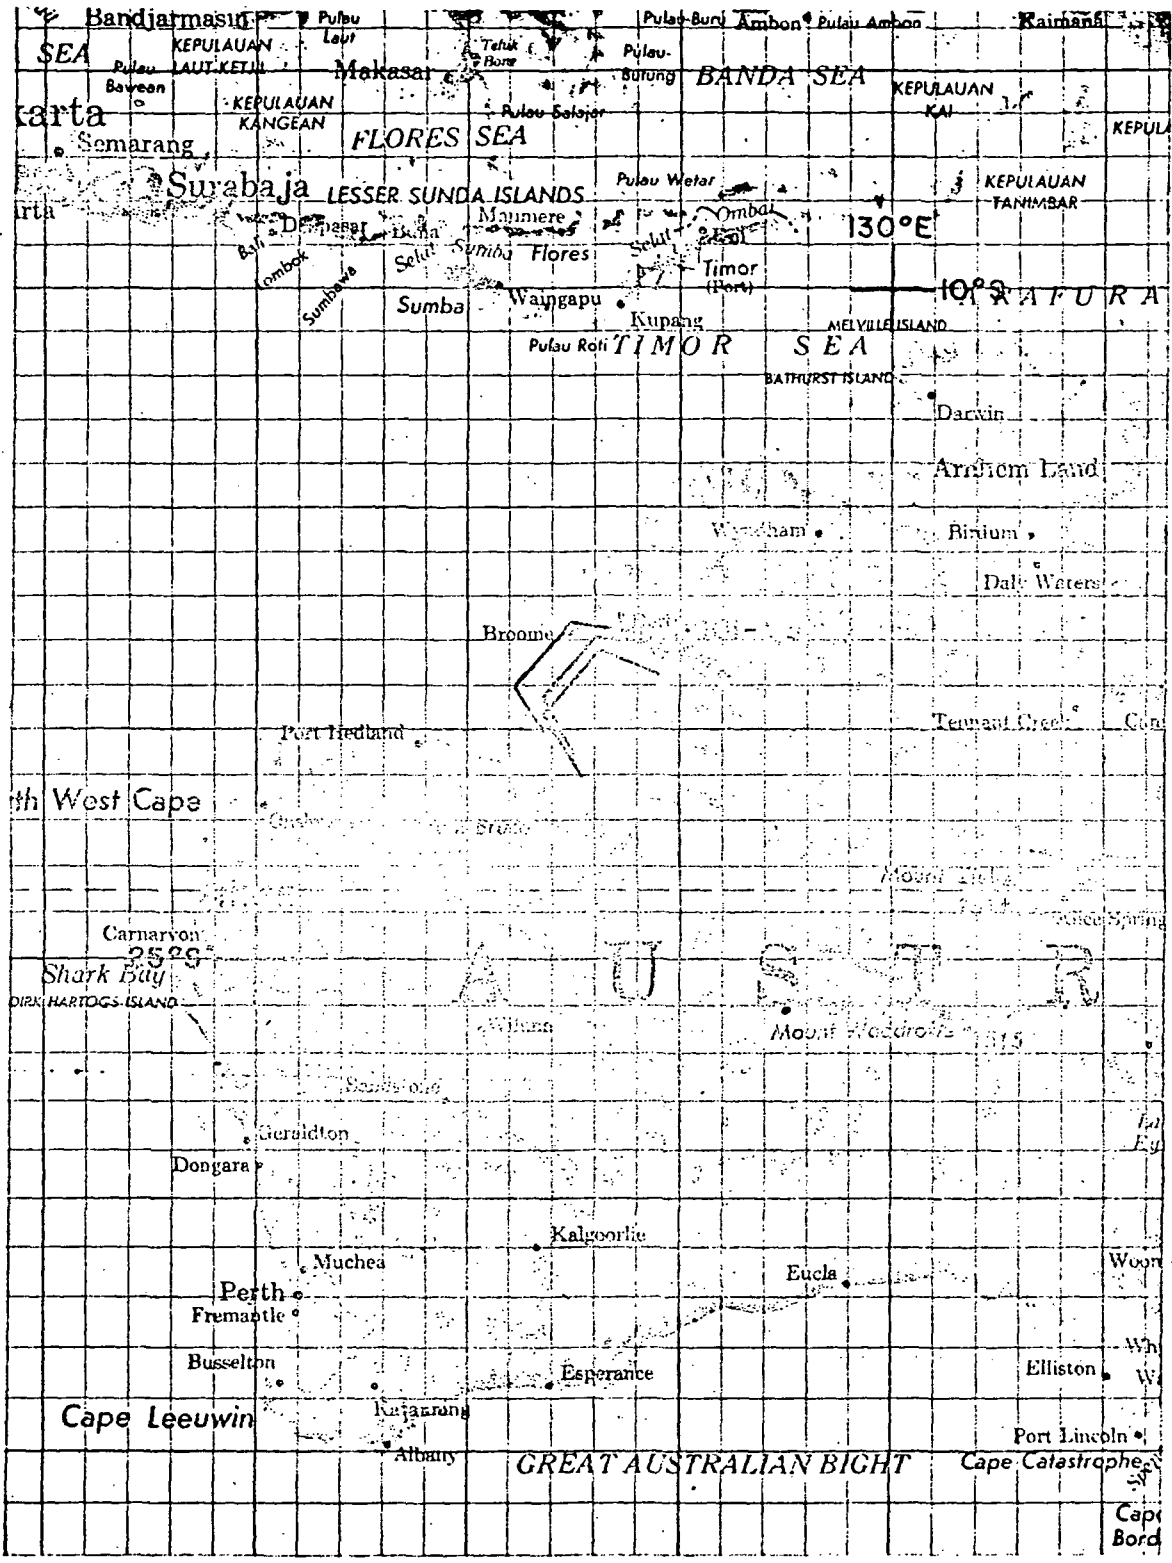 Bandjarmasin
Pulau
Laut
Pulau Buru
Ambon
Pulau Ambon
Kaimana
SEA
KEPULAUAN
LAUT-KETJIL
Teluk
Bone
Pulau
Bawean
Makasar
Pulau-
Butung
BANDA SEA
KEPULAUAN
KAI
karta
KEPULAUAN
KANGEAN
Pulau Salajar
FLORES SEA
KEPULA
Semarang
Surabaja
LESSER SUNDA ISLANDS
Pulau Wetar
KEPULAUAN
TANIMBAR
arta
Denpasar
Bima
Maumere
Ombai
130°E
Bali
Lombok
Sumbawa
Selat Sumba
Flores
Selat
Timor
(Port)
Sumba
Waingapu
Kupang
10°S
ARAFURA
MELVILLE ISLAND
Pulau Roti
TIMOR SEA
BATHURST ISLAND
Darwin
Arnhem Land
Wyndham
Birdum
Daly Waters
Broome
Tennant Creek
Port Hedland
th West Cape
Mount
Alice Spring
Carnarvon
25°S
Shark Bay
DIRK HARTOGS ISLAND
A U S T R
Wiluna
Mount Woodroffe
Sandstone
Geraldton
Dongara
Kalgoorlie
Muchea
Eucla
Woom
Perth
Fremantle
Busselton
Esperance
Elliston
Wh
Cape Leeuwin
Albany
Port Lincoln
GREAT AUSTRALIAN BIGHT
Cape Catastrophe
Cape
Bord